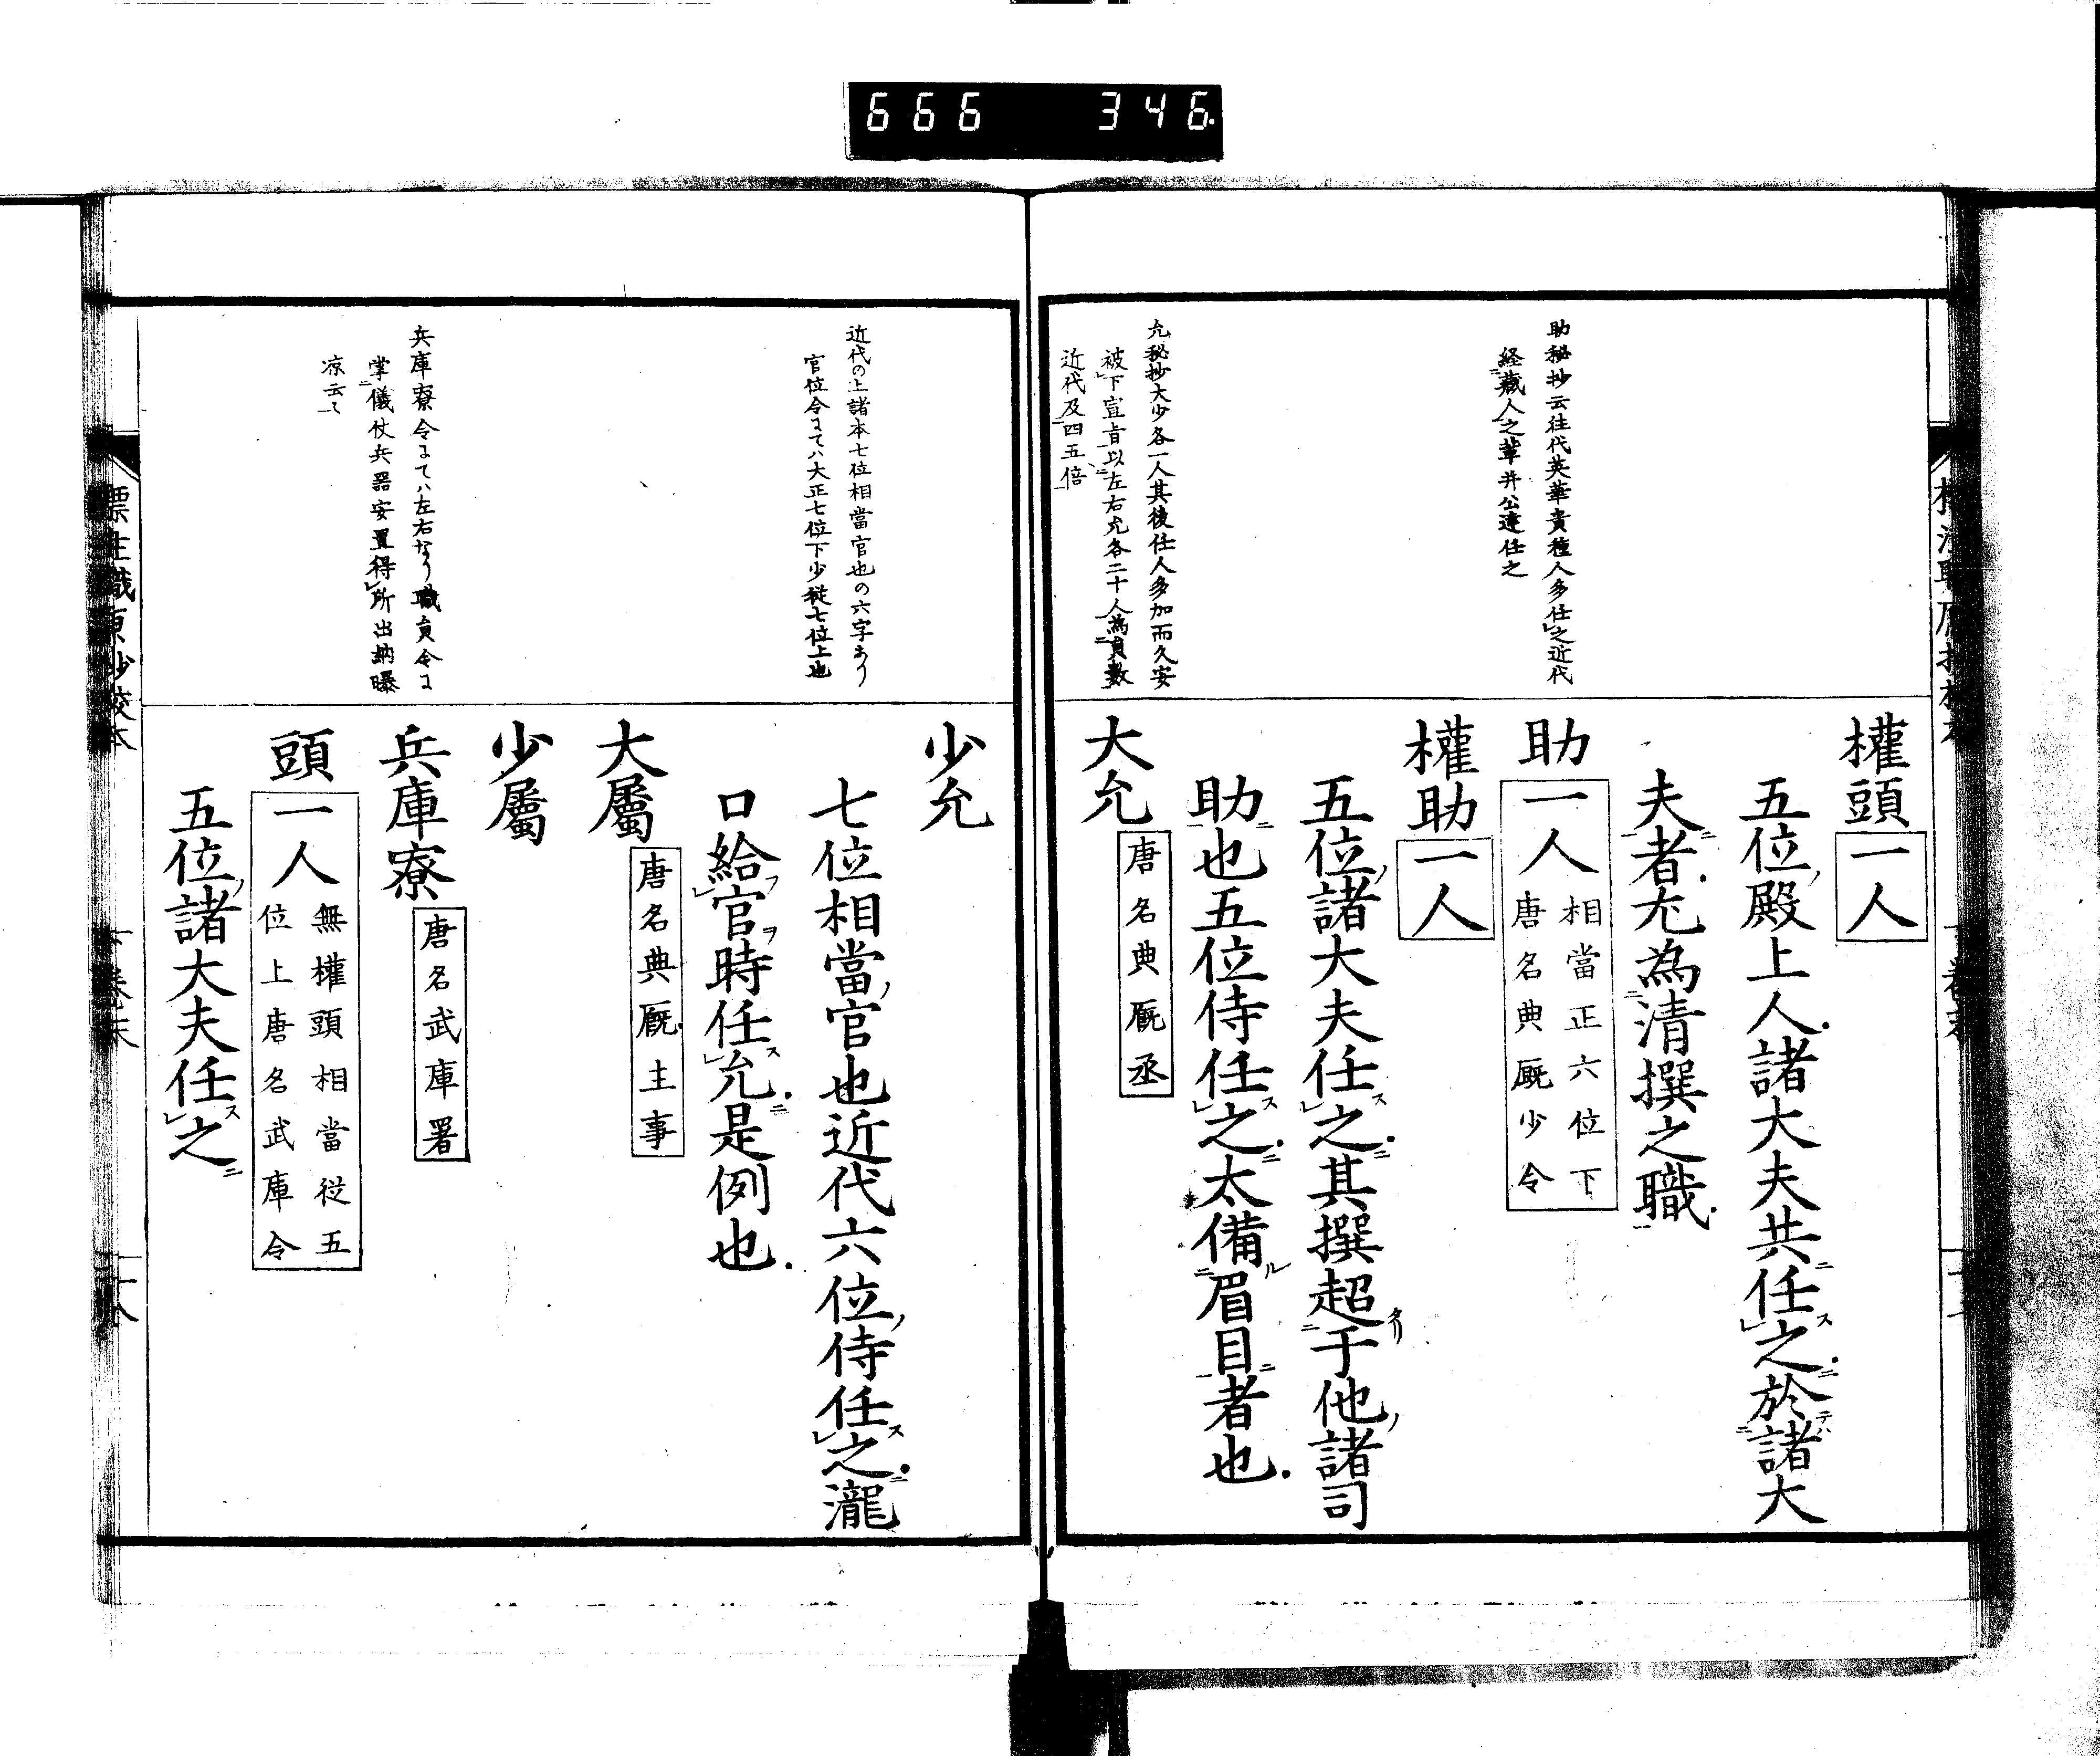 666 346
助秘抄云往代英華貴種人多任之近代
経蔵人之輩并公達任之
允秘抄大少各一人其後任人多加而久安
被下宣旨以左右允各二十人為員数
近代及四五倍
權頭 一人
五位ノ殿上人諸大夫共ニ任スレ之ニ於テハ諸大
夫者尤為清撰之職
助 一人 相當正六位下
唐名典厩少令
權助 一人
五位ノ諸大夫任スレ之ニ其撰超于他ノ諸司
助也五位侍任スレ之ニ太備ル眉目ニ者也
大允 唐名典厩丞
近代の上諸本七位相當官也の六字あり
官位令にてハ大正七位下少従七位上也
兵庫寮令にてハ左右なり職員令に
掌儀仗兵器安置得所出納曝
凉云々
少允
七位相當ノ官也近代六位ノ侍任スレ之ニ瀧
口給フレ官ヲ時任スレ允ニ是例也
大屬 唐名典厩主事
少屬
兵庫寮 唐名武庫署
頭 一人 無權頭相當従五
位上唐名武庫令
五位ノ諸大夫任スレ之ニ
標注職原抄校本